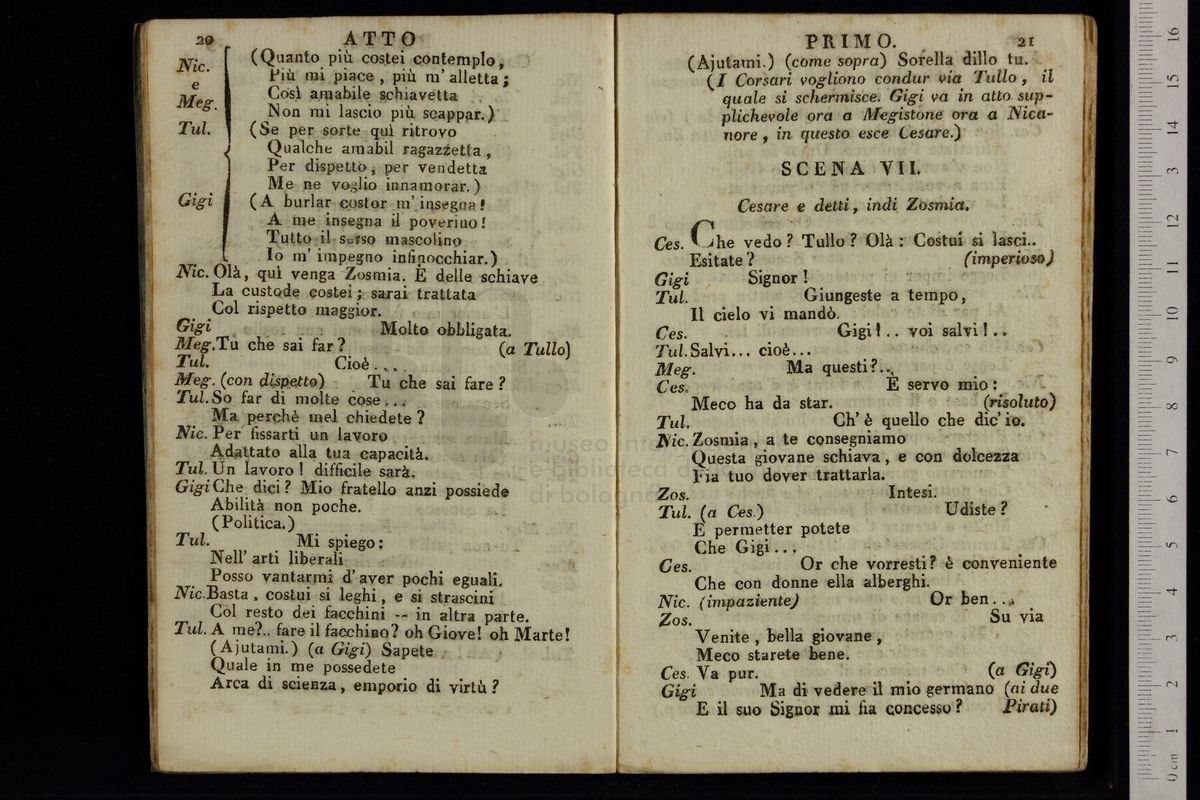 20 ATTO
Nic. e Meg. (Quanto più costei contemplo,
Più mi piace, più m' alletta;
Così amabile schiavetta
Non mi lascio più scappar.)
Tul. (Se per sorte quì ritrovo
Qualche amabil ragazzetta,
Per dispetto, per vendetta
Me ne voglio innamorar.)
Gigi (A burlar costor m' insegna!
A me insegna il poverino!
Tutto il sesso mascolino
Io m' impegno infinocchiar.)
Nic. Olà, quì venga Zosmia. È delle schiave
La custode costei; sarai trattata
Col rispetto maggior.
Gigi Molto obbligata.
Meg. Tu che sai far? (a Tullo)
Tul. Cioè...
Meg. (con dispetto) Tu che sai fare?
Tul. So far di molte cose...
Ma perchè mel chiedete?
Nic. Per fissarti un lavoro
Adattato alla tua capacità.
Tul. Un lavoro! difficile sarà.
Gigi Che dici? Mio fratello anzi possiede
Abilità non poche.
(Politica.)
Tul. Mi spiego:
Nell' arti liberali
Posso vantarmi d' aver pochi eguali.
Nic. Basta, costui si leghi, e si strascini
Col resto dei facchini -- in altra parte.
Tul. A me?.. fare il facchino? oh Giove! oh Marte!
(Ajutami.) (a Gigi) Sapete
Quale in me possedete
Arca di scienza, emporio di virtù?
PRIMO. 21
(Ajutami.) (come sopra) Sorella dillo tu.
(I Corsari vogliono condur via Tullo, il
quale si schermisce. Gigi va in atto sup-
plichevole ora a Megistone ora a Nica-
nore, in questo esce Cesare.)
SCENA VII.
Cesare e detti, indi Zosmia.
Ces. Che vedo? Tullo? Olà: Costui si lasci..
Esitate? (imperioso)
Gigi Signor!
Tul. Giungeste a tempo,
Il cielo vi mandò.
Ces. Gigi!.. voi salvi!..
Tul. Salvi... cioè...
Meg. Ma questi?...
Ces. È servo mio:
Meco ha da star. (risoluto)
Tul. Ch' è quello che dic' io.
Nic. Zosmia, a te consegniamo
Questa giovane schiava, e con dolcezza
Fia tuo dover trattarla.
Zos. Intesi.
Tul. (a Ces.) Udiste?
E permetter potete
Che Gigi...
Ces. Or che vorresti? è conveniente
Che con donne ella alberghi.
Nic. (impaziente) Or ben...
Zos. Su via
Venite, bella giovane,
Meco starete bene.
Ces. Va pur. (a Gigi)
Gigi Ma di vedere il mio germano (ai due
E il suo Signor mi fia concesso? Pirati)
museo inte
e biblioteca d
di bologna
0 cm 1 2 3 4 5 6 7 8 9 10 11 12 13 14 15 16